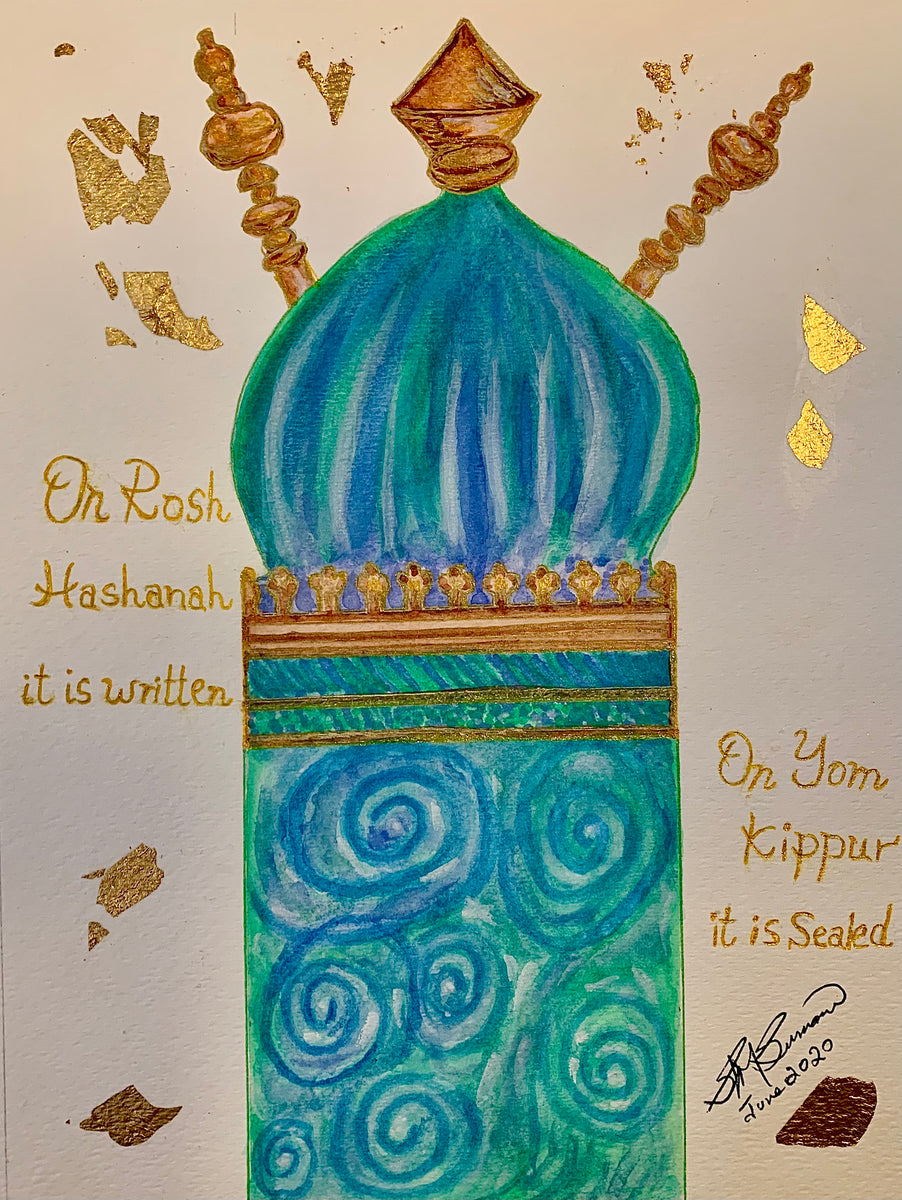 On Rosh
Hashanah
it is written
On Yom
Kippur
it is Sealed
June 2020